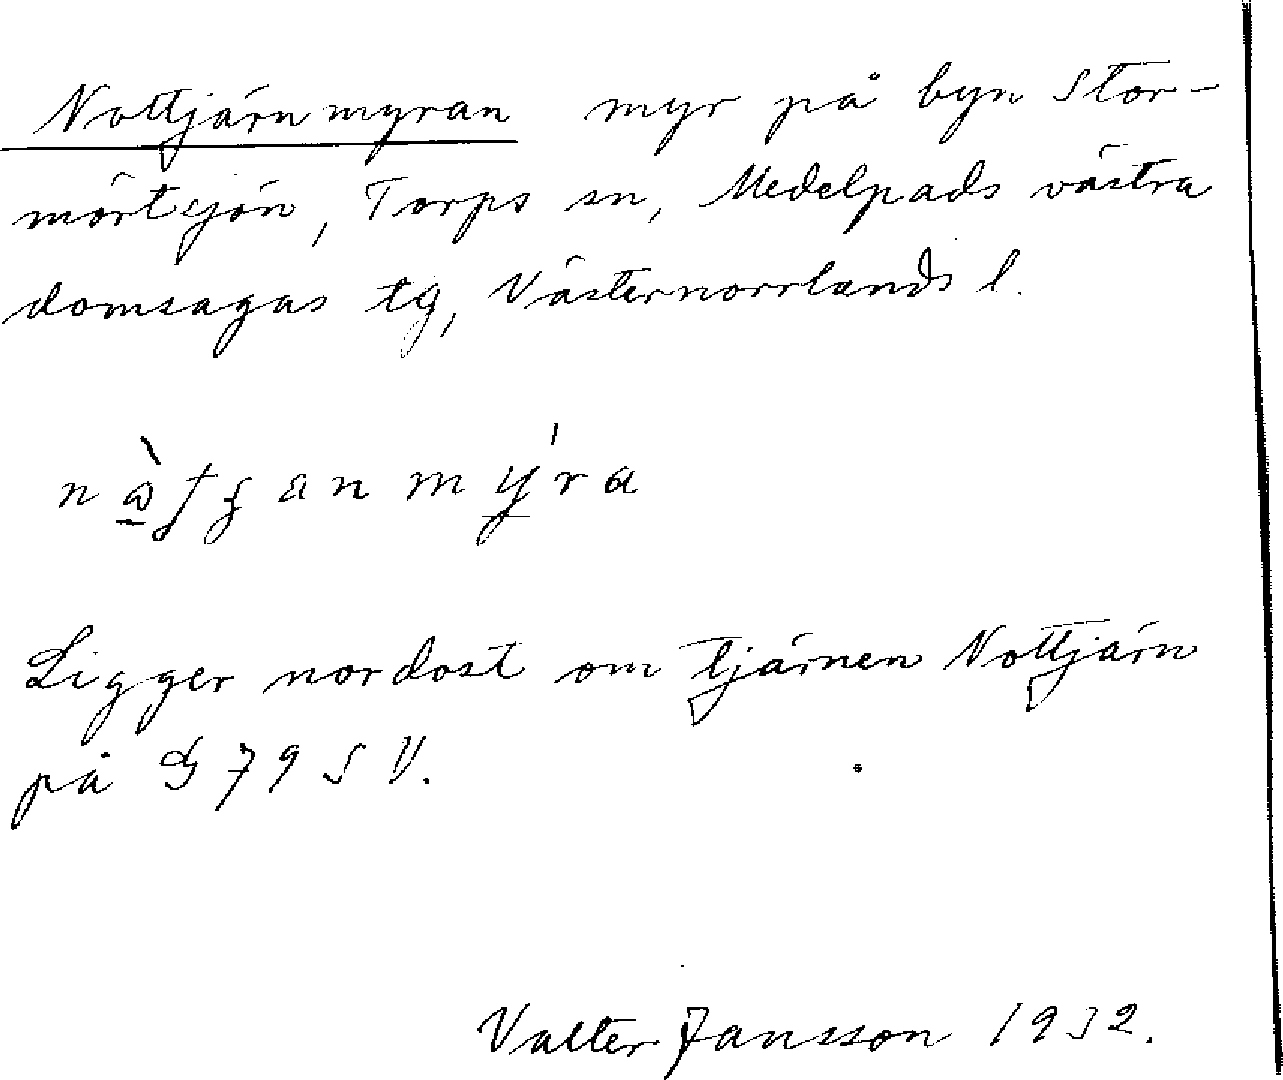 Nottjärnmyran myr på byn Stor-
mörtsjön, Torps sn, Medelpads västra
domsagas tg, Västernorrlands l.
Ligger nordost om tjärnen Nottjärn
på G 79 SV.
Valter Jansson 1932.